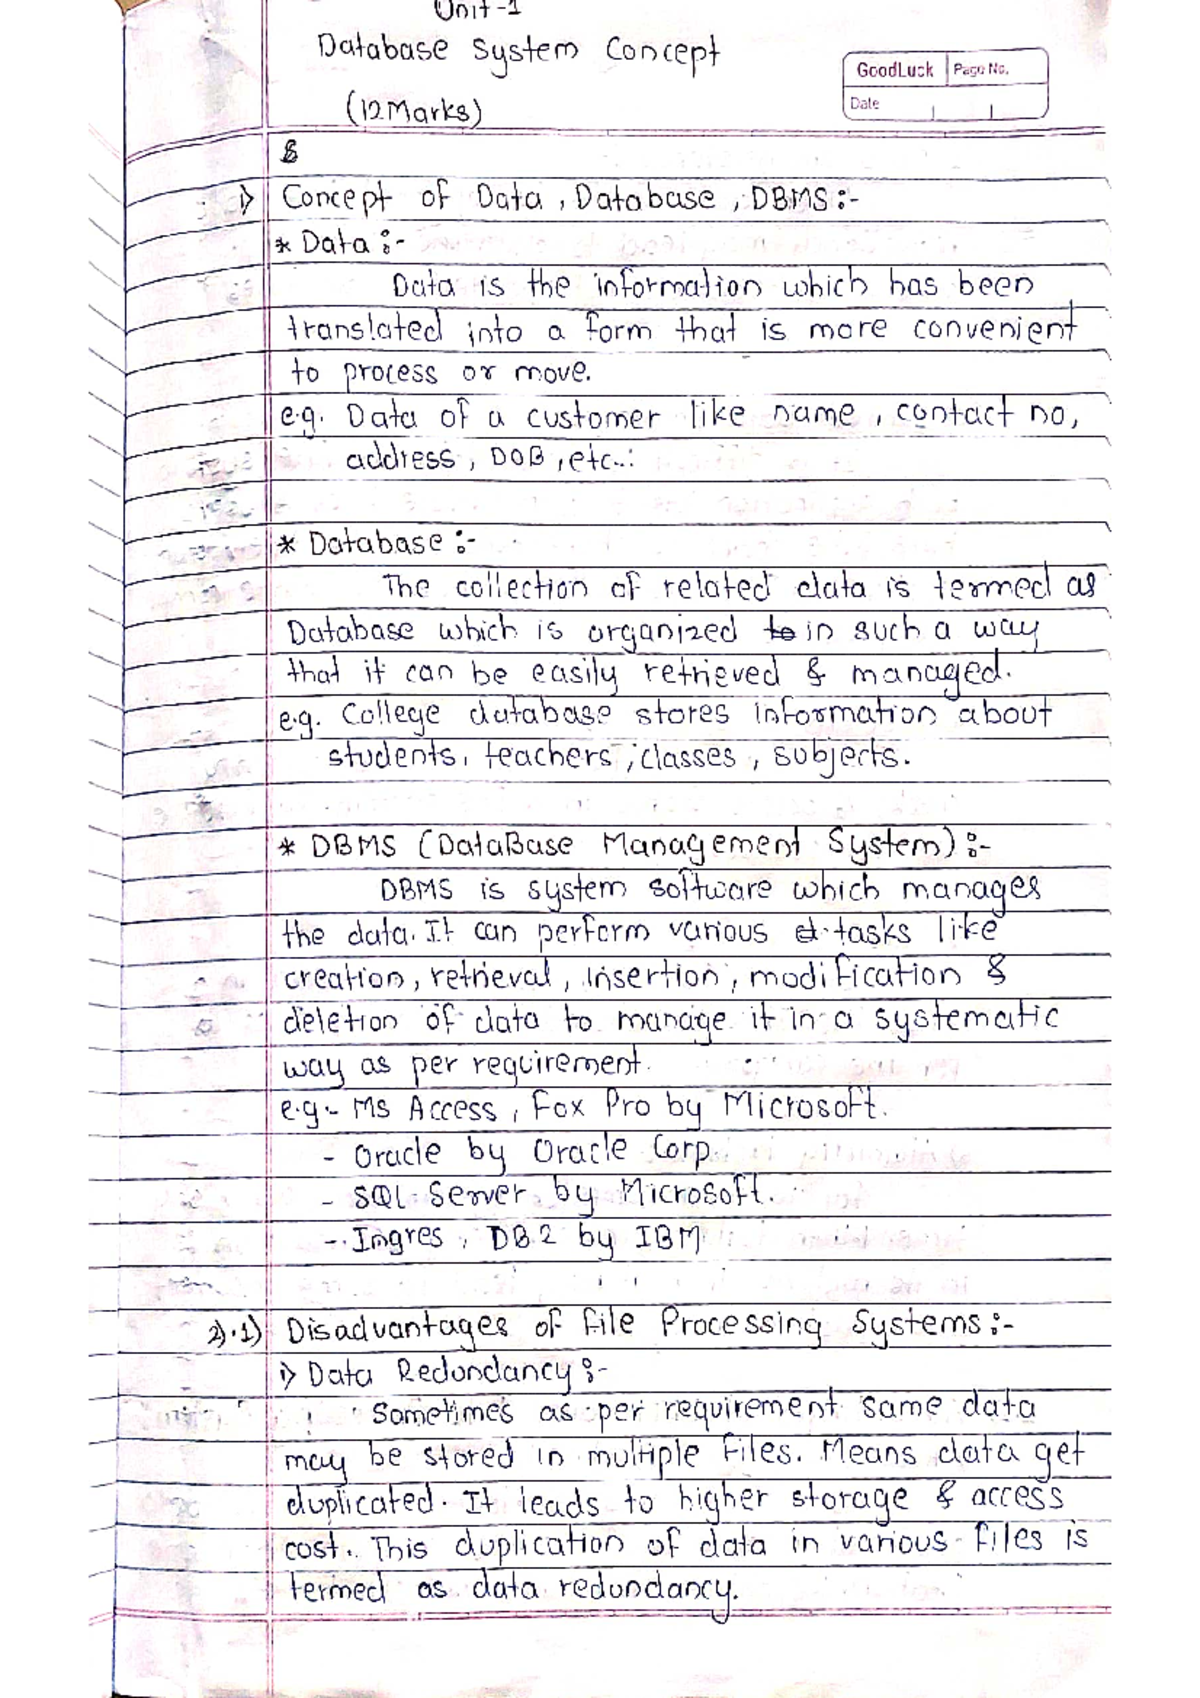 Unit-1
Database System Concept
(12Marks)
GoodLuck Page No.
Date
1) Concept of Data, Database, DBMS:-
* Data:-
Data is the information which has been
translated into a form that is more convenient
to process or move.
e.g. Data of a customer like name, contact no,
address, DOB, etc...
* Database:-
The collection of related data is termed as
Database which is organized to in such a way
that it can be easily retrieved & managed.
e.g. College database stores information about
students, teachers, classes, subjects.
* DBMS (DataBase Management System):-
DBMS is system software which manages
the data. It can perform various tasks like
creation, retrieval, insertion, modification &
deletion of data to manage it in a systematic
way as per requirement.
e.g:- Ms Access, Fox Pro by Microsoft.
- Oracle by Oracle Corp.
- SQL Server by Microsoft.
- Ingres, DB2 by IBM
2).1) Disadvantages of File Processing Systems:-
1) Data Redundancy:-
Sometimes as per requirement same data
may be stored in multiple files. Means data get
duplicated. It leads to higher storage & access
cost. This duplication of data in various files is
termed as data redundancy.